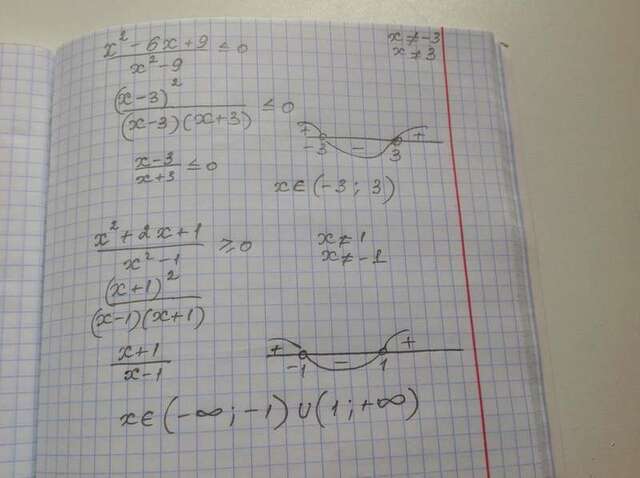 x² - 6x + 9 / x² - 9 ≤ 0
x ≠ -3
x ≠ 3
(x-3)² / (x-3)(x+3) ≤ 0
+ - +
-3 3
x-3 / x+3 ≤ 0
x ∈ (-3; 3)
x² + 2x + 1 / x² - 1 ≥ 0
x ≠ 1
x ≠ -1
(x+1)² / (x-1)(x+1)
x+1 / x-1
+ - +
-1 1
x ∈ (-∞; -1) ∪ (1; +∞)